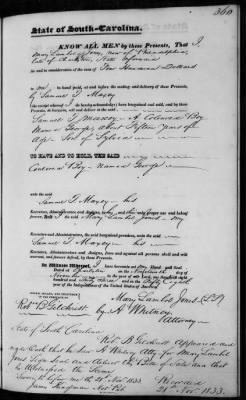 360
State of South-Carolina.
KNOW ALL MEN by these Presents, That I,
Mary Lambol Jones, now of Philadelphia
late of Charleston, State aforesaid
for and in consideration of the sum of Five Hundred Dollars
to me in hand paid, at and before the sealing and delivery of these Presents,
by Samuel J. Maxey
(the receipt whereof I do hereby acknowledge) have bargained and sold, and by these
Presents, do bargain, sell and deliver to the said
Samuel J Maxey - A Colored Boy
Named George, about Fifteen years of
age - Son of Sylvia
TO HAVE AND TO HOLD THE SAID
Colored Boy - Named George
unto the said
Samuel J. Maxey - his
Executors, Administrators and Assigns, to his and their only proper use and behoof
forever. And I the said Mary Lambol Jones - my
Executors and Administrators, the said bargained premises, unto the said
Samuel J. Maxey - his
Executors, Administrators and Assigns, from and against all persons shall and will
warrant, and forever defend, by these Presents.
In Witness Whereof, I have hereunto set my Hand and Seal
Dated at Charleston on the day of
November in the year of our Lord one thousand eight
hundred and thirty three and in the Fifty Eighth
year of the Independence of the United States of America.
SIGNED, SEALED AND DELIVERED
IN THE PRESENCE OF
Mary Lambol Jones (L.S.)
Robt B Gilchrist by A Whitney
Attorney
State of South Carolina
Robt B. Gilchrist Appeared and
made Oath that he saw A Whitney Atty for Mary Lambol
Jones Sign Seal and deliver this Bill of Sale and that
he Witnessed the Same
Sworn to before me the 21 Nov. 1833 Recorded
Not Pub. 21 Nov. 1833.